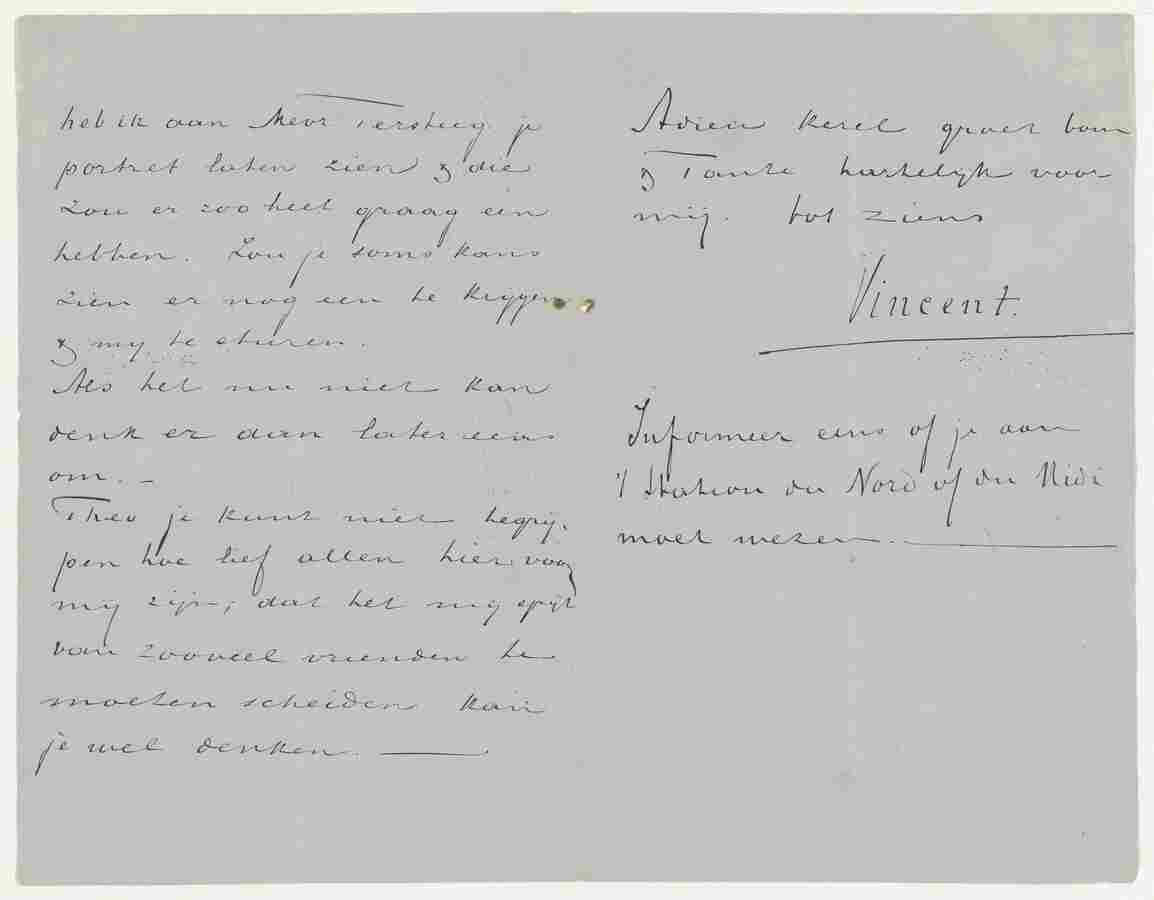 heb ik aan Mevr Tersteeg je
portret laten zien & die
zou er zoo heel graag een
hebben. Zou je soms kans
zien er nog een te krygen
& my te sturen.
Als het nu niet kan
denk er dan later eens
om. –
Theo je kunt niet begrij-
pen hoe lief allen hier voor
mij zijn; dat het mij spijt
van zooveel vrienden te
moeten scheiden kan
je wel denken. —
Adieu kerel groet Oom
& Tante hartelijk voor
mij. tot ziens
Vincent.
Informeer eens of je aan
't Station du Nord of du Midi
moet wezen. —